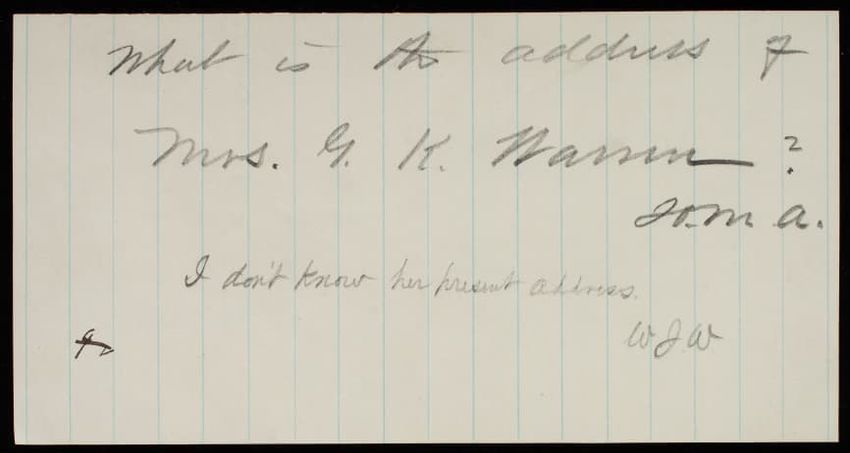 What is the address of
Mrs. G. K. Warren?
H. M. A.
I don't know her present address.
W J W